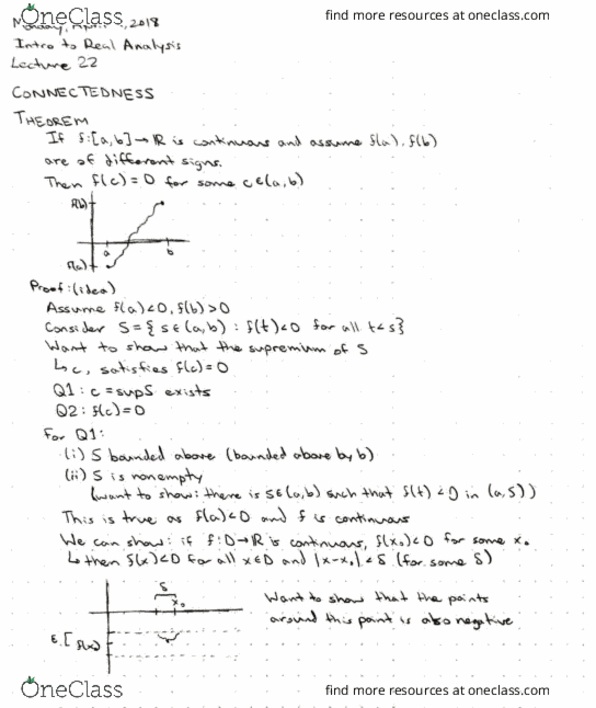 OneClass
find more resources at oneclass.com
Monday, April , 2018
Intro to Real Analysis
Lecture 22
CONNECTEDNESS
THEOREM
If f:[a,b]→ℝ is continuous and assume f(a), f(b)
are of different signs.
Then f(c)=0 for some c∈(a,b)
f(b)
a
b
f(a)
Proof:(idea)
Assume f(a)<0, f(b)>0
Consider S={s∈(a,b) : f(t)<0 for all t<s}
Want to show that the supremium of S
↳c, satisfies f(c)=0
Q1: c=supS exists
Q2: f(c)=0
For Q1:
(i) S bounded above (bounded above by b)
(ii) S is nonempty
(want to show: there is s∈(a,b) such that f(t)<0 in (a,s))
This is true as f(a)<0 and f is continuous
We can show: if f:D→ℝ is continuous, f(x₀)<0 for some x₀
↳ then f(x)<0 for all x∈D and |x-x₀|<δ (for some δ)
δ
x₀
Want to show that the points
around this point is also negative
ε.[ f(x₀)
OneClass
find more resources at oneclass.com